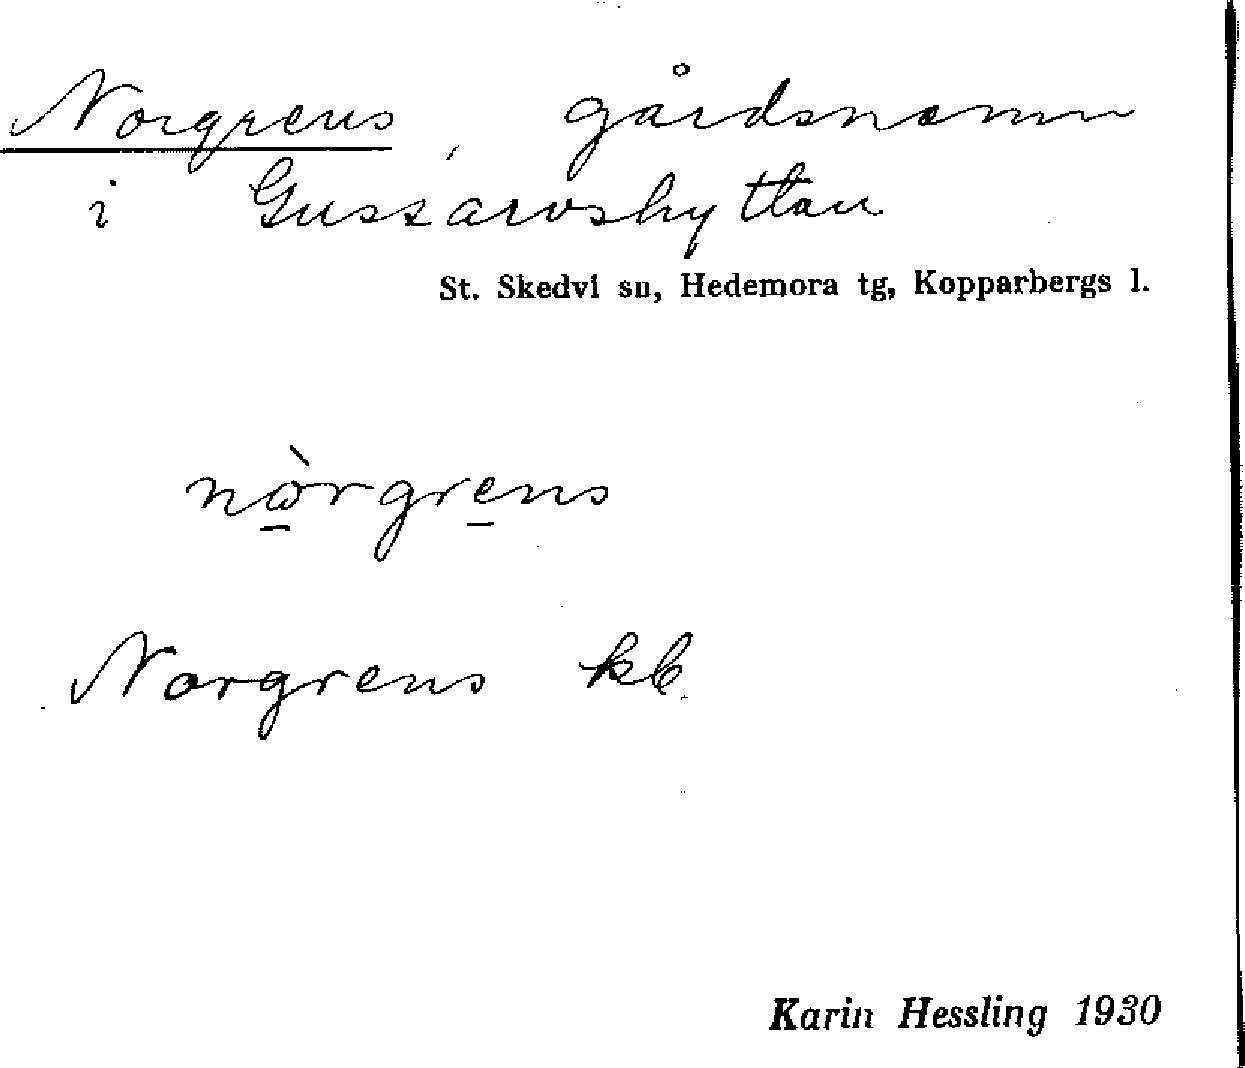 Norgrens, gårdsnamn
i Gussarvshyttan
St. Skedvi sn, Hedemora tg, Kopparbergs l.
nòrgrens
Norgrens kb.
Karin Hessling 1930